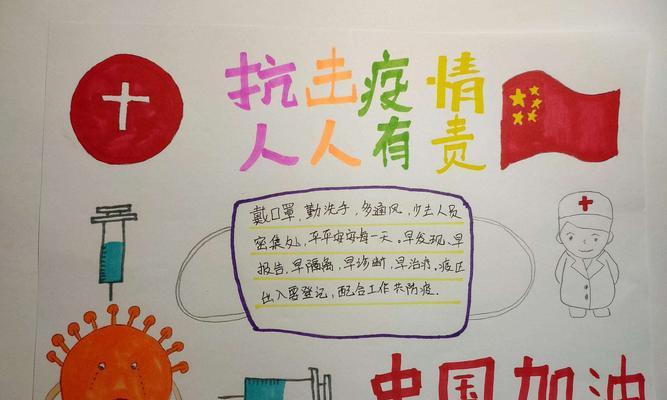 抗击疫情
人人有责
戴口罩,勤洗手,多通风,少去人员
密集处,平平安安每一天。早发现、早
报告,早隔离,早诊断,早治疗,疫区
出入要登记,配合工作共防疫.
中国加油